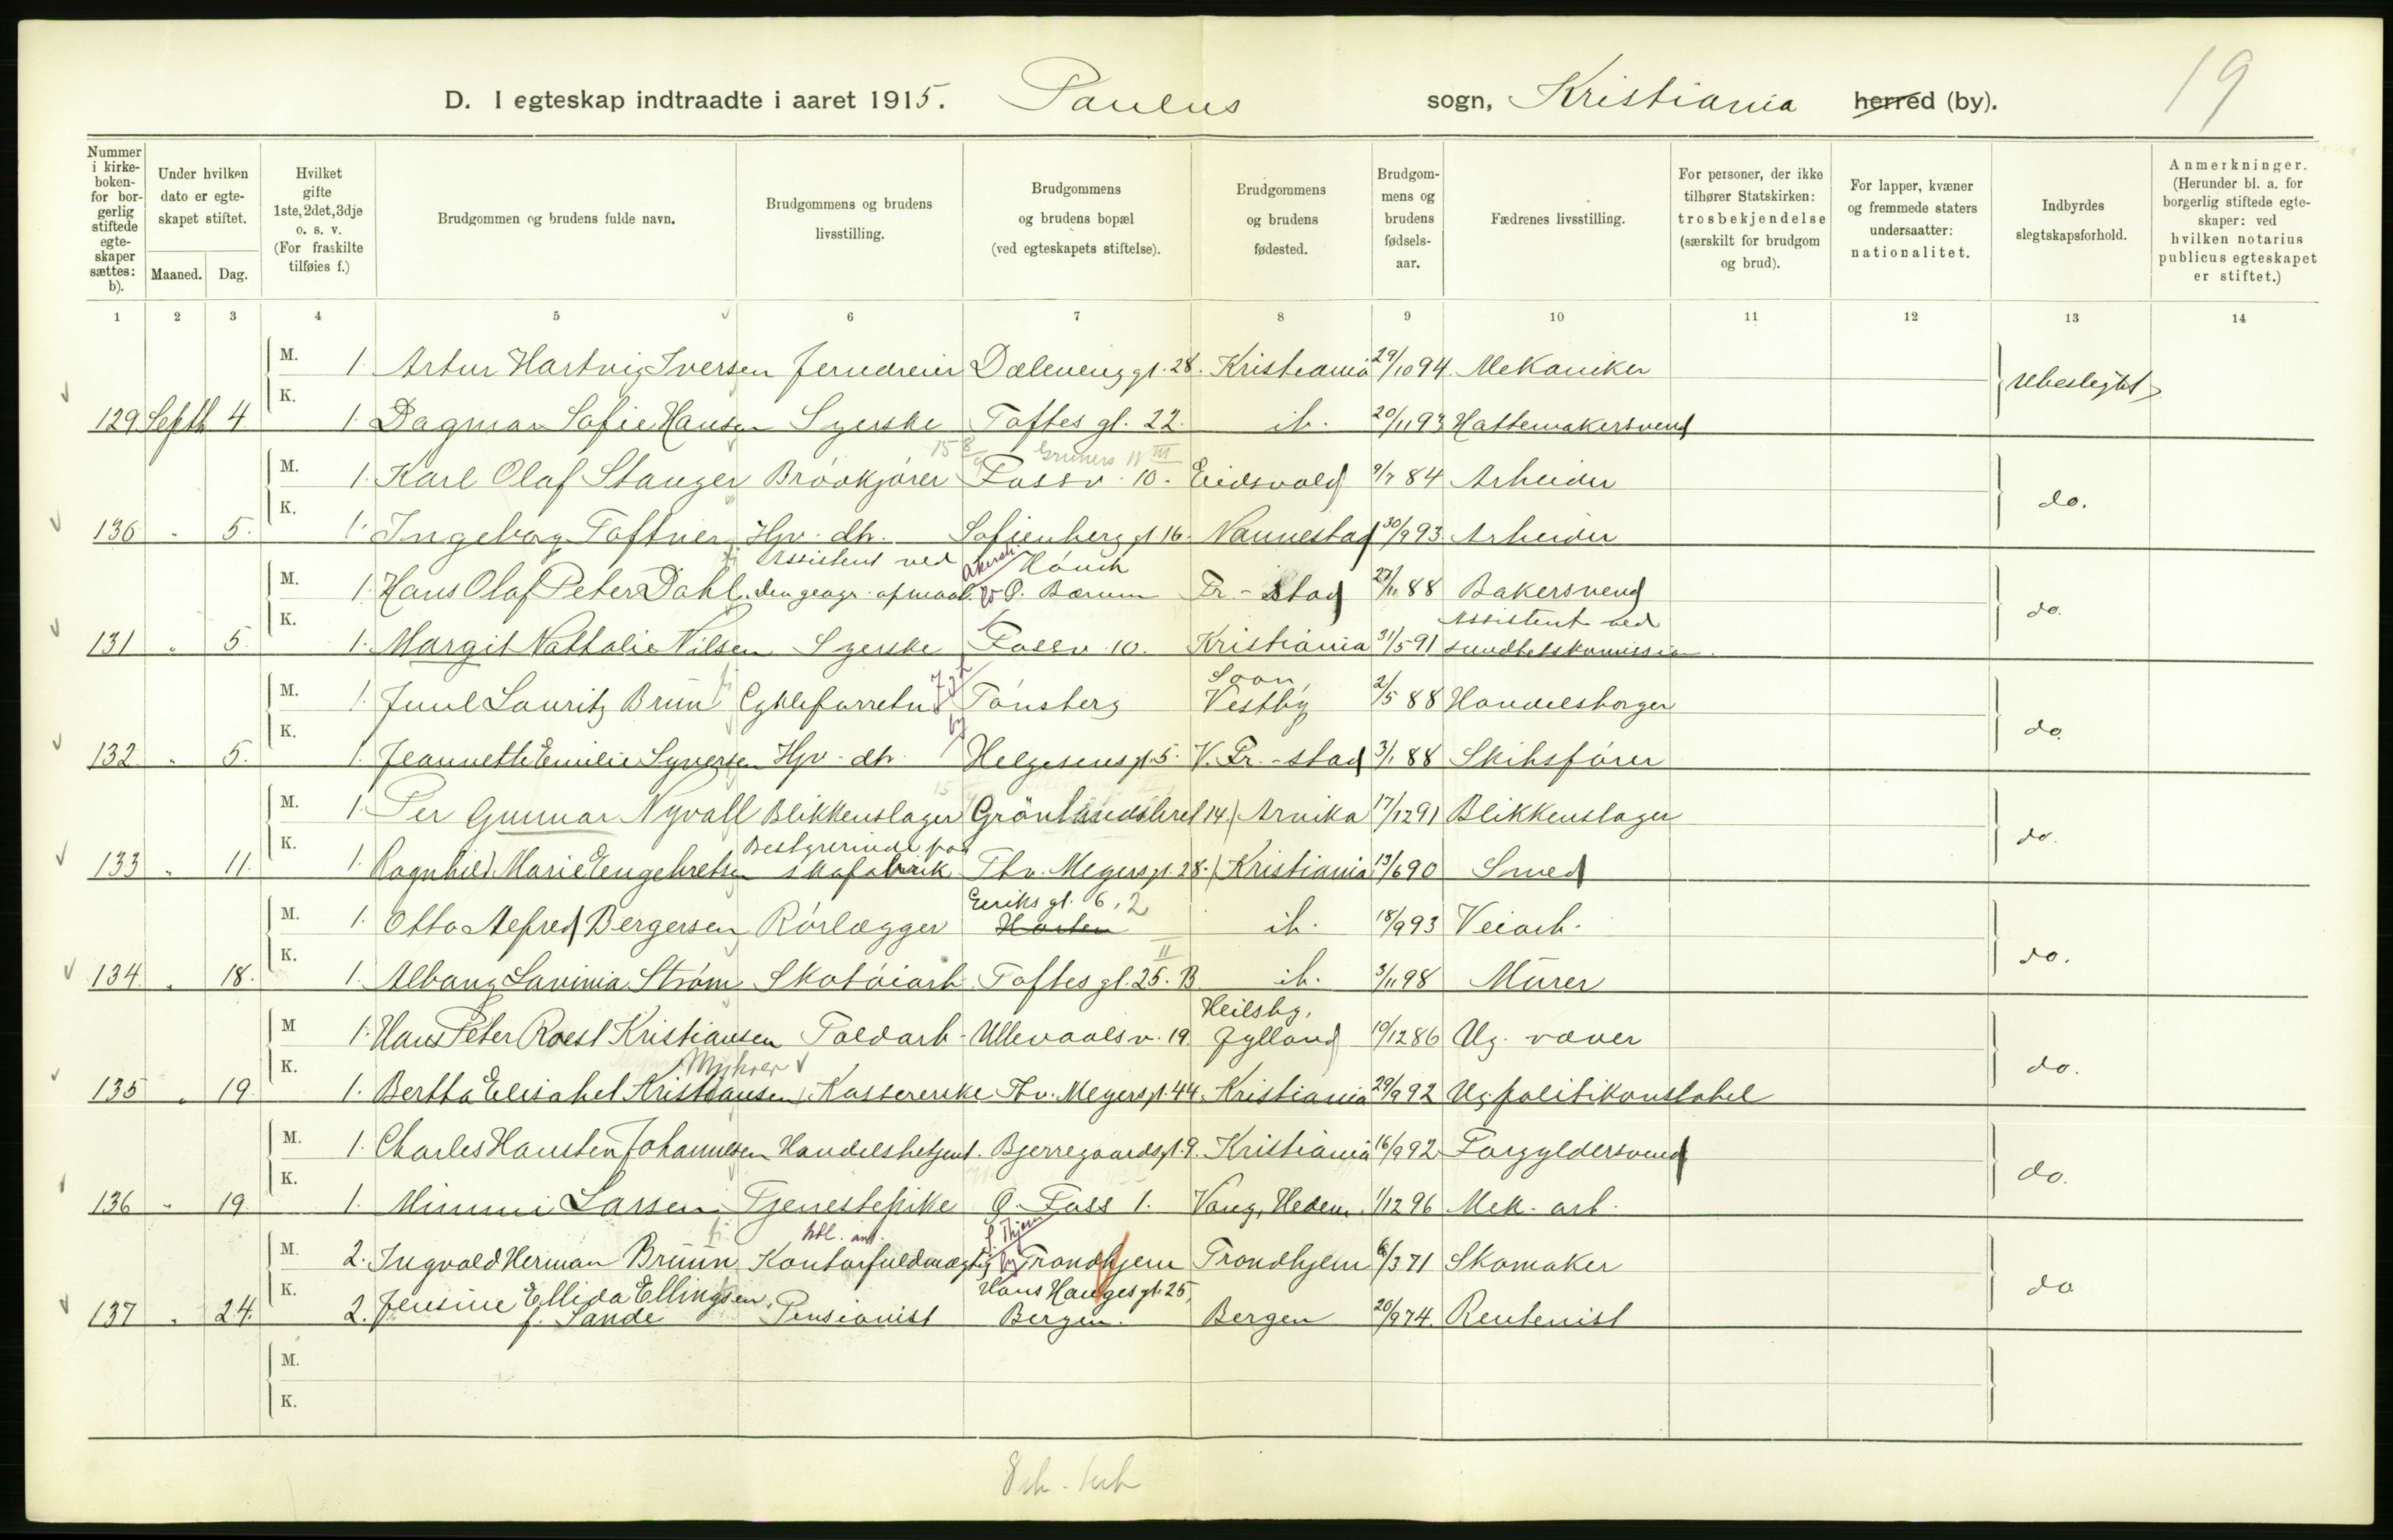 19
D. I egteskap indtraadte i aaret 1915. Paulus sogn, Kristiania herred (by).
Nummer i kirkeboken- for borgerlig stiftede egteskaper sættes: b).
Under hvilken dato er egteskapet stiftet.
Maaned. Dag.
Hvilket gifte 1ste, 2det, 3dje o. s. v. (For fraskilte tilføies f.)
Brudgommen og brudens fulde navn.
Brudgommens og brudens livsstilling.
Brudgommens og brudens bopæl (ved egteskapets stiftelse).
Brudgommens og brudens fødested.
Brudgommens og brudens fødselsaar.
Fædrenes livsstilling.
For personer, der ikke tilhører Statskirken: trosbekjendelse (særskilt for brudgom og brud).
For lapper, kvæner og fremmede staters undersaatter: nationalitet.
Indbyrdes slegtskapsforhold.
Anmerkninger. (Herunder bl. a. for borgerlig stiftede egteskaper: ved hvilken notarius publicus egteskapet er stiftet.)
1 2 3 4 5 6 7 8 9 10 11 12 13 14
M. 1. Artur Hartvig Iversen Jerndreier Dæleneng gt. 28. Kristiania 29/10 94 Mekaniker
Ubeslegtet
129 Septb 4 K. 1. Dagmar Sofie Hansen Syerske Toftes gt. 22. ib. 20/11 93 Hattemakersvend
Gruners 11 III
M. 1. Karl Olaf Stanger Brödkjörer Fossv. 10. Eidsvold 9/7 84 Arbeider
do.
130 " 5. K. 1. Ingeborg Toftner Hjv. dtr. Sofienberg gt 16. Nannestad 30/9 93. Arbeider
Assistent ved Hövik
M. 1. Hans Olaf Peter Dahl. den geogr. opmaal. Ö. Bærum Fr.-stad 27/11 88 Bakersvend
do.
Assistent ved
131 " 5 K. 1. Margit Nathalie Nilsen Syerske Fossv. 10. Kristiania 31/5 91 sundhetskomission.
Soon,
M. 1. Juul Lauritz Bruun Cykleforretn. Tönsberg Vestby 2/5 88 Handelsborger
do.
132 " 5. K. 1. Jeannette Emilie Syversen Hjv. dtr. Helgesens gt. 5. V. Fr.-stad 3/1 88 Skibsförer
M. 1. Per Gunnar Nyvall Blikkenslager Grönlandsleret 14. Arvika 17/12 91 Blikkenslager
do.
Bestyrerinde paa
133 " 11. K. 1. Ragnhild Marie Engebretsen skofabrik Thv. Meyers gt. 28. Kristiania 13/6 90 Smed
Eiriks gt. 6, 2
M. 1. Otto Alfred Bergersen Rörlægger Horten ib. 18/9 93 Veiarb.
do.
II
134. " 18. K. 1. Albany Lavinia Ström Skotöiarb. Toftes gt. 25. B ib. 3/11 98 Mürer
Heilsby,
M 1. Hans Peter Roest Kristiansen Toldarb. Ullevaalsv. 19. Jylland 10/12 86 Ug. væver
do.
Myhrer
135 " 19. K. 1. Bertha Elisabet Kristiansen Kassererske Thv. Meyers gt. 44. Kristiania 29/9 92 Ug. politikonstabel
M. 1. Charles Hansten Johannesen Handelsbetjent. Bjerregaards gt. 9. Kristiania 16/9 92 Forgyldersvend
do.
136 " 19. K. 1. Mimmi Larsen Tjenestepike Ö. Foss 1. Vang, Hedem. 1/12 96 Mek. arb.
S. Thjem
M. 2. Ingvald Herman Bruun Kontorfuldmægtig Trondhjem Trondhjem 6/3 71 Skomaker
do
Hans Hauges gt. 25,
137 " 24. K. 2. Jensine Ellida Ellingsen, Pensionist Bergen. Bergen 20/9 74. Rentenist
f. Sande
M.
K.